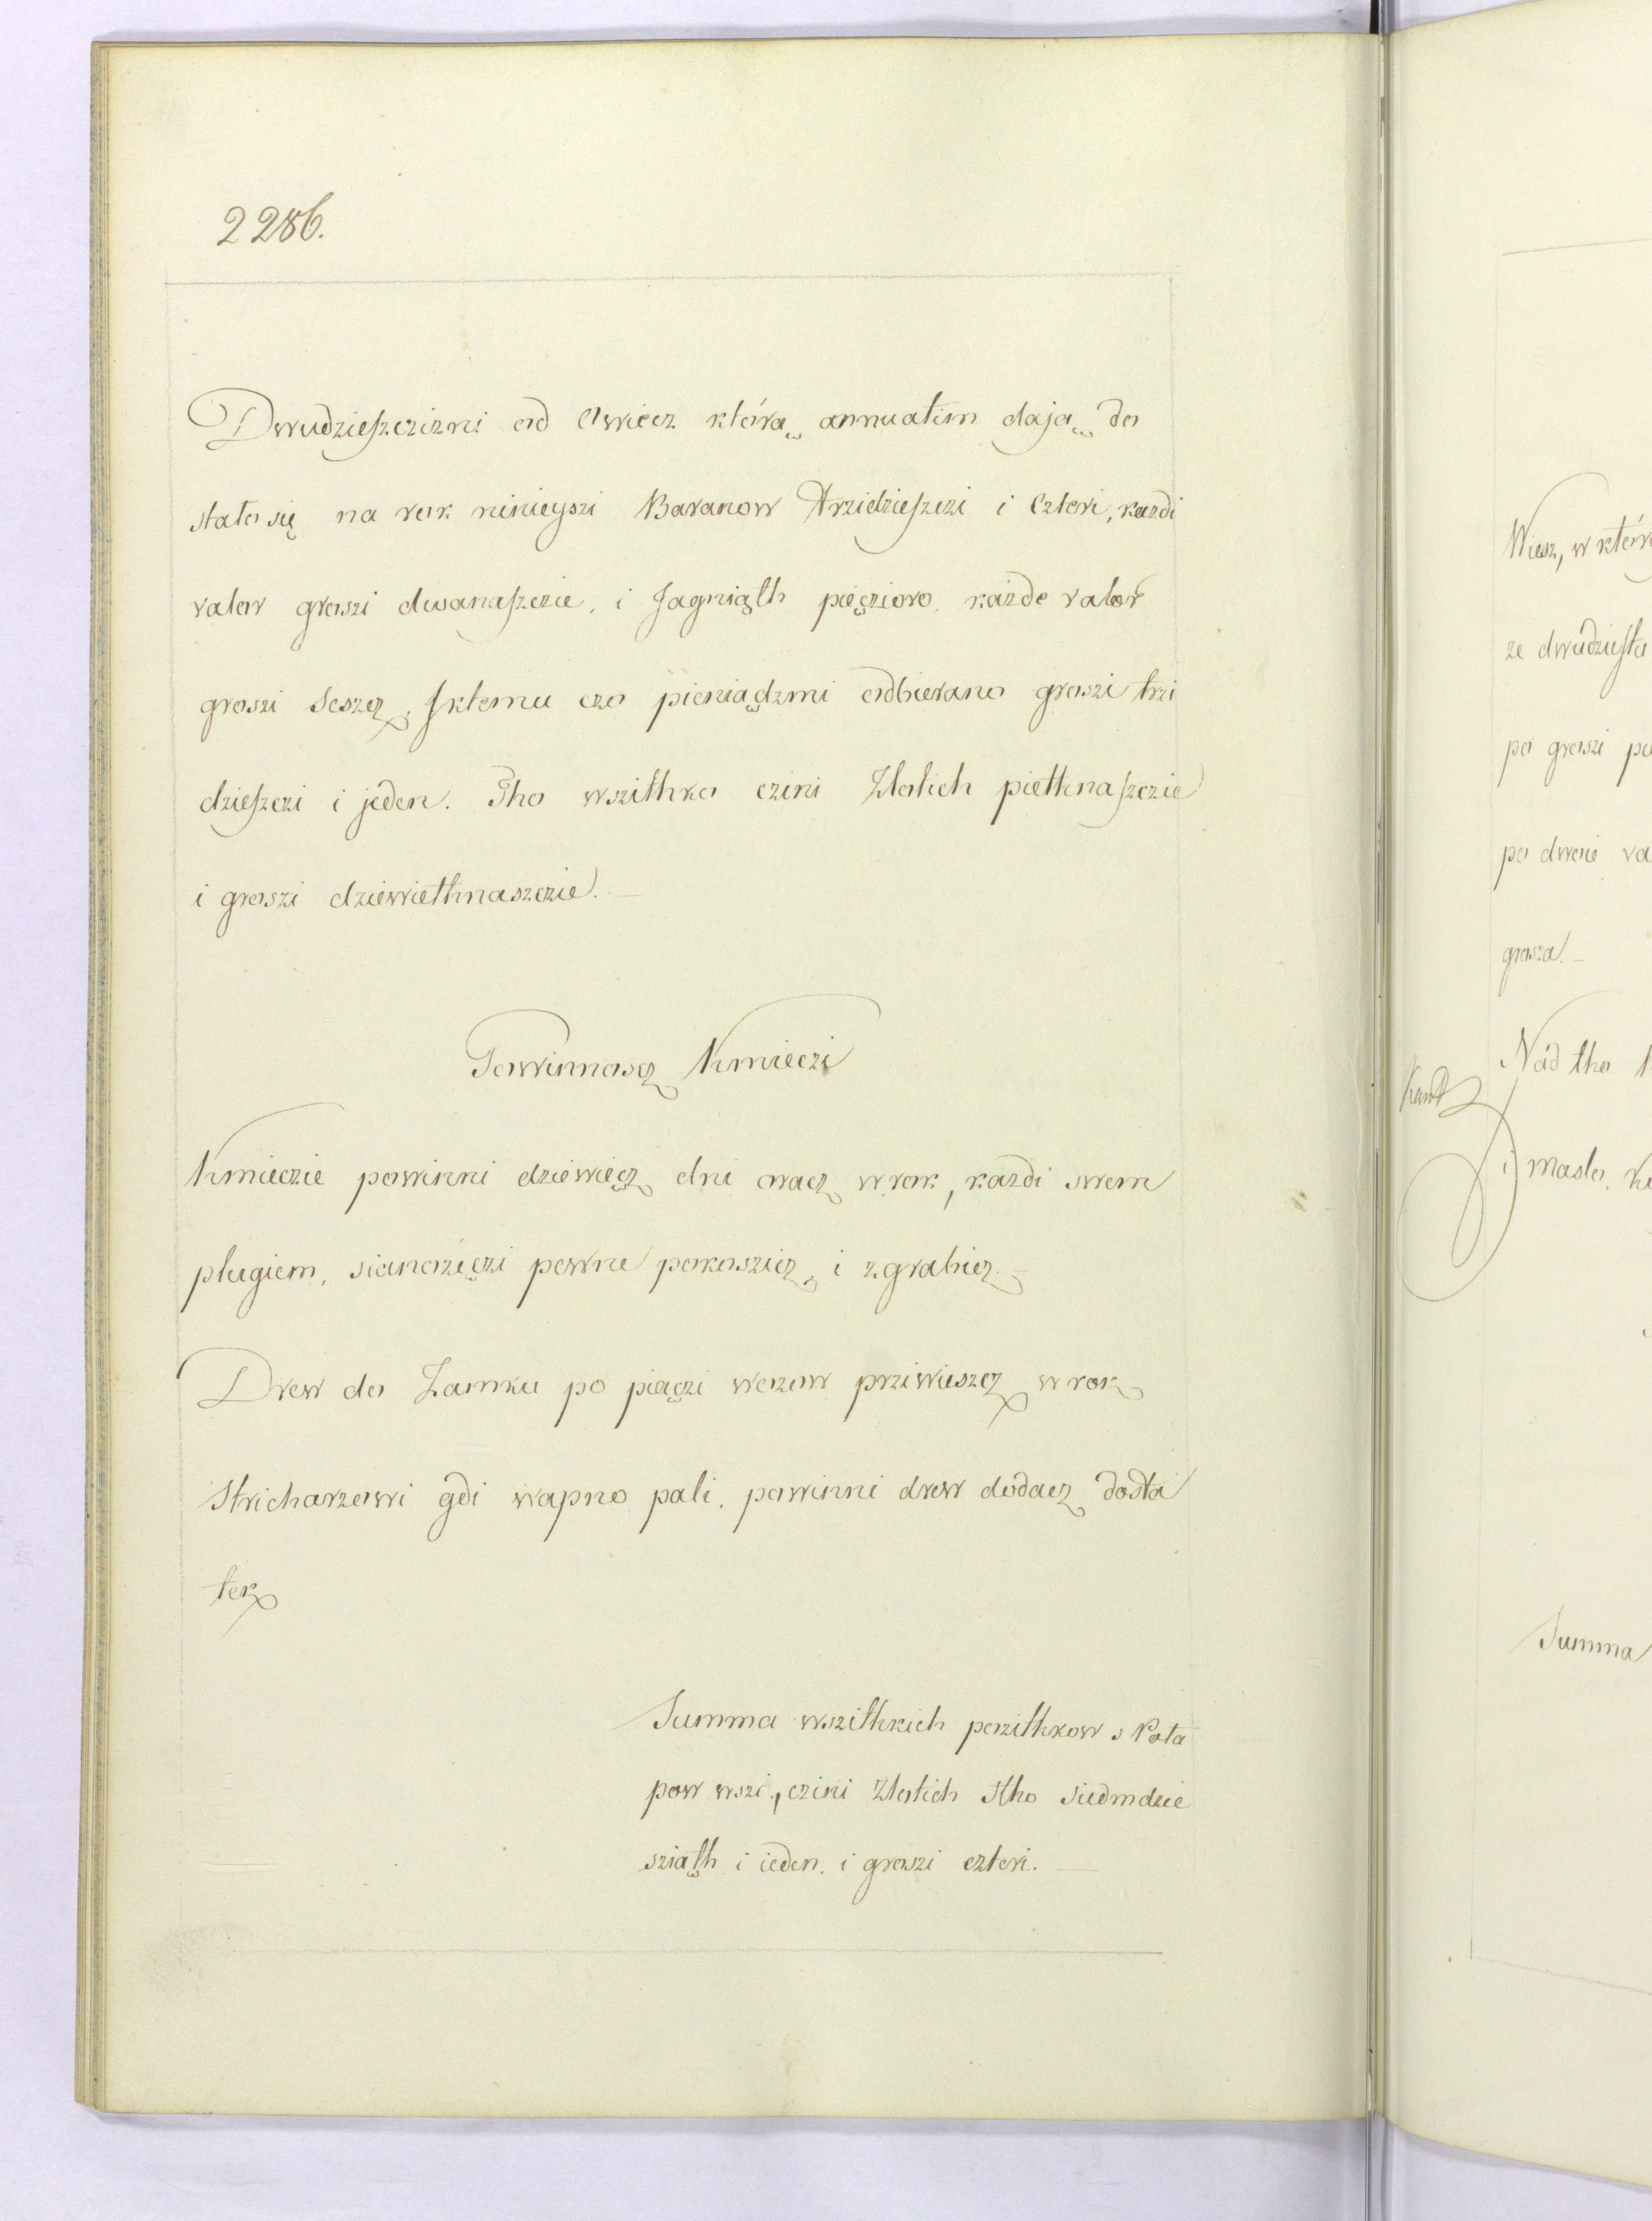 2286.
Dwudzieszczizni od Owiecz którą annuatim dają do
stało się na rok ninieyszi Baranow Trzidzieszczi i Czteri, kazdi
valor groszi dwanaszczie, i Jagniąth pięczioro, każde valor
groszi Szescz, Ktemu czo pieniądzmi odbierano groszi trzi
dzieszczi i jeden. Tho wszithko czini Zlotich piethnaszczie
i groszi dziewiethnaszczie.
Powinnoscz Kmieczi
Kmieczie powinni dziewięcz dni oracz w rok, kazdi swem
plugiem, sianożęczi pewne pokoszicz, i zgrabicz
Drew do Zamku po piączi wozow przwieszcz w rok
Stricharzowi gdi wapno pali, powinni drew dodacz dosta
tek
Summa wszithkich pozithkow s Pota
pow wszi, czini Zlotich Stho siedmdzie
sziąth i ieden, i groszi czteri.
Wiesz, w
ze dwudziesta
po groszi
po dwoie
grosza.
Nad tho
i masla,
Summa